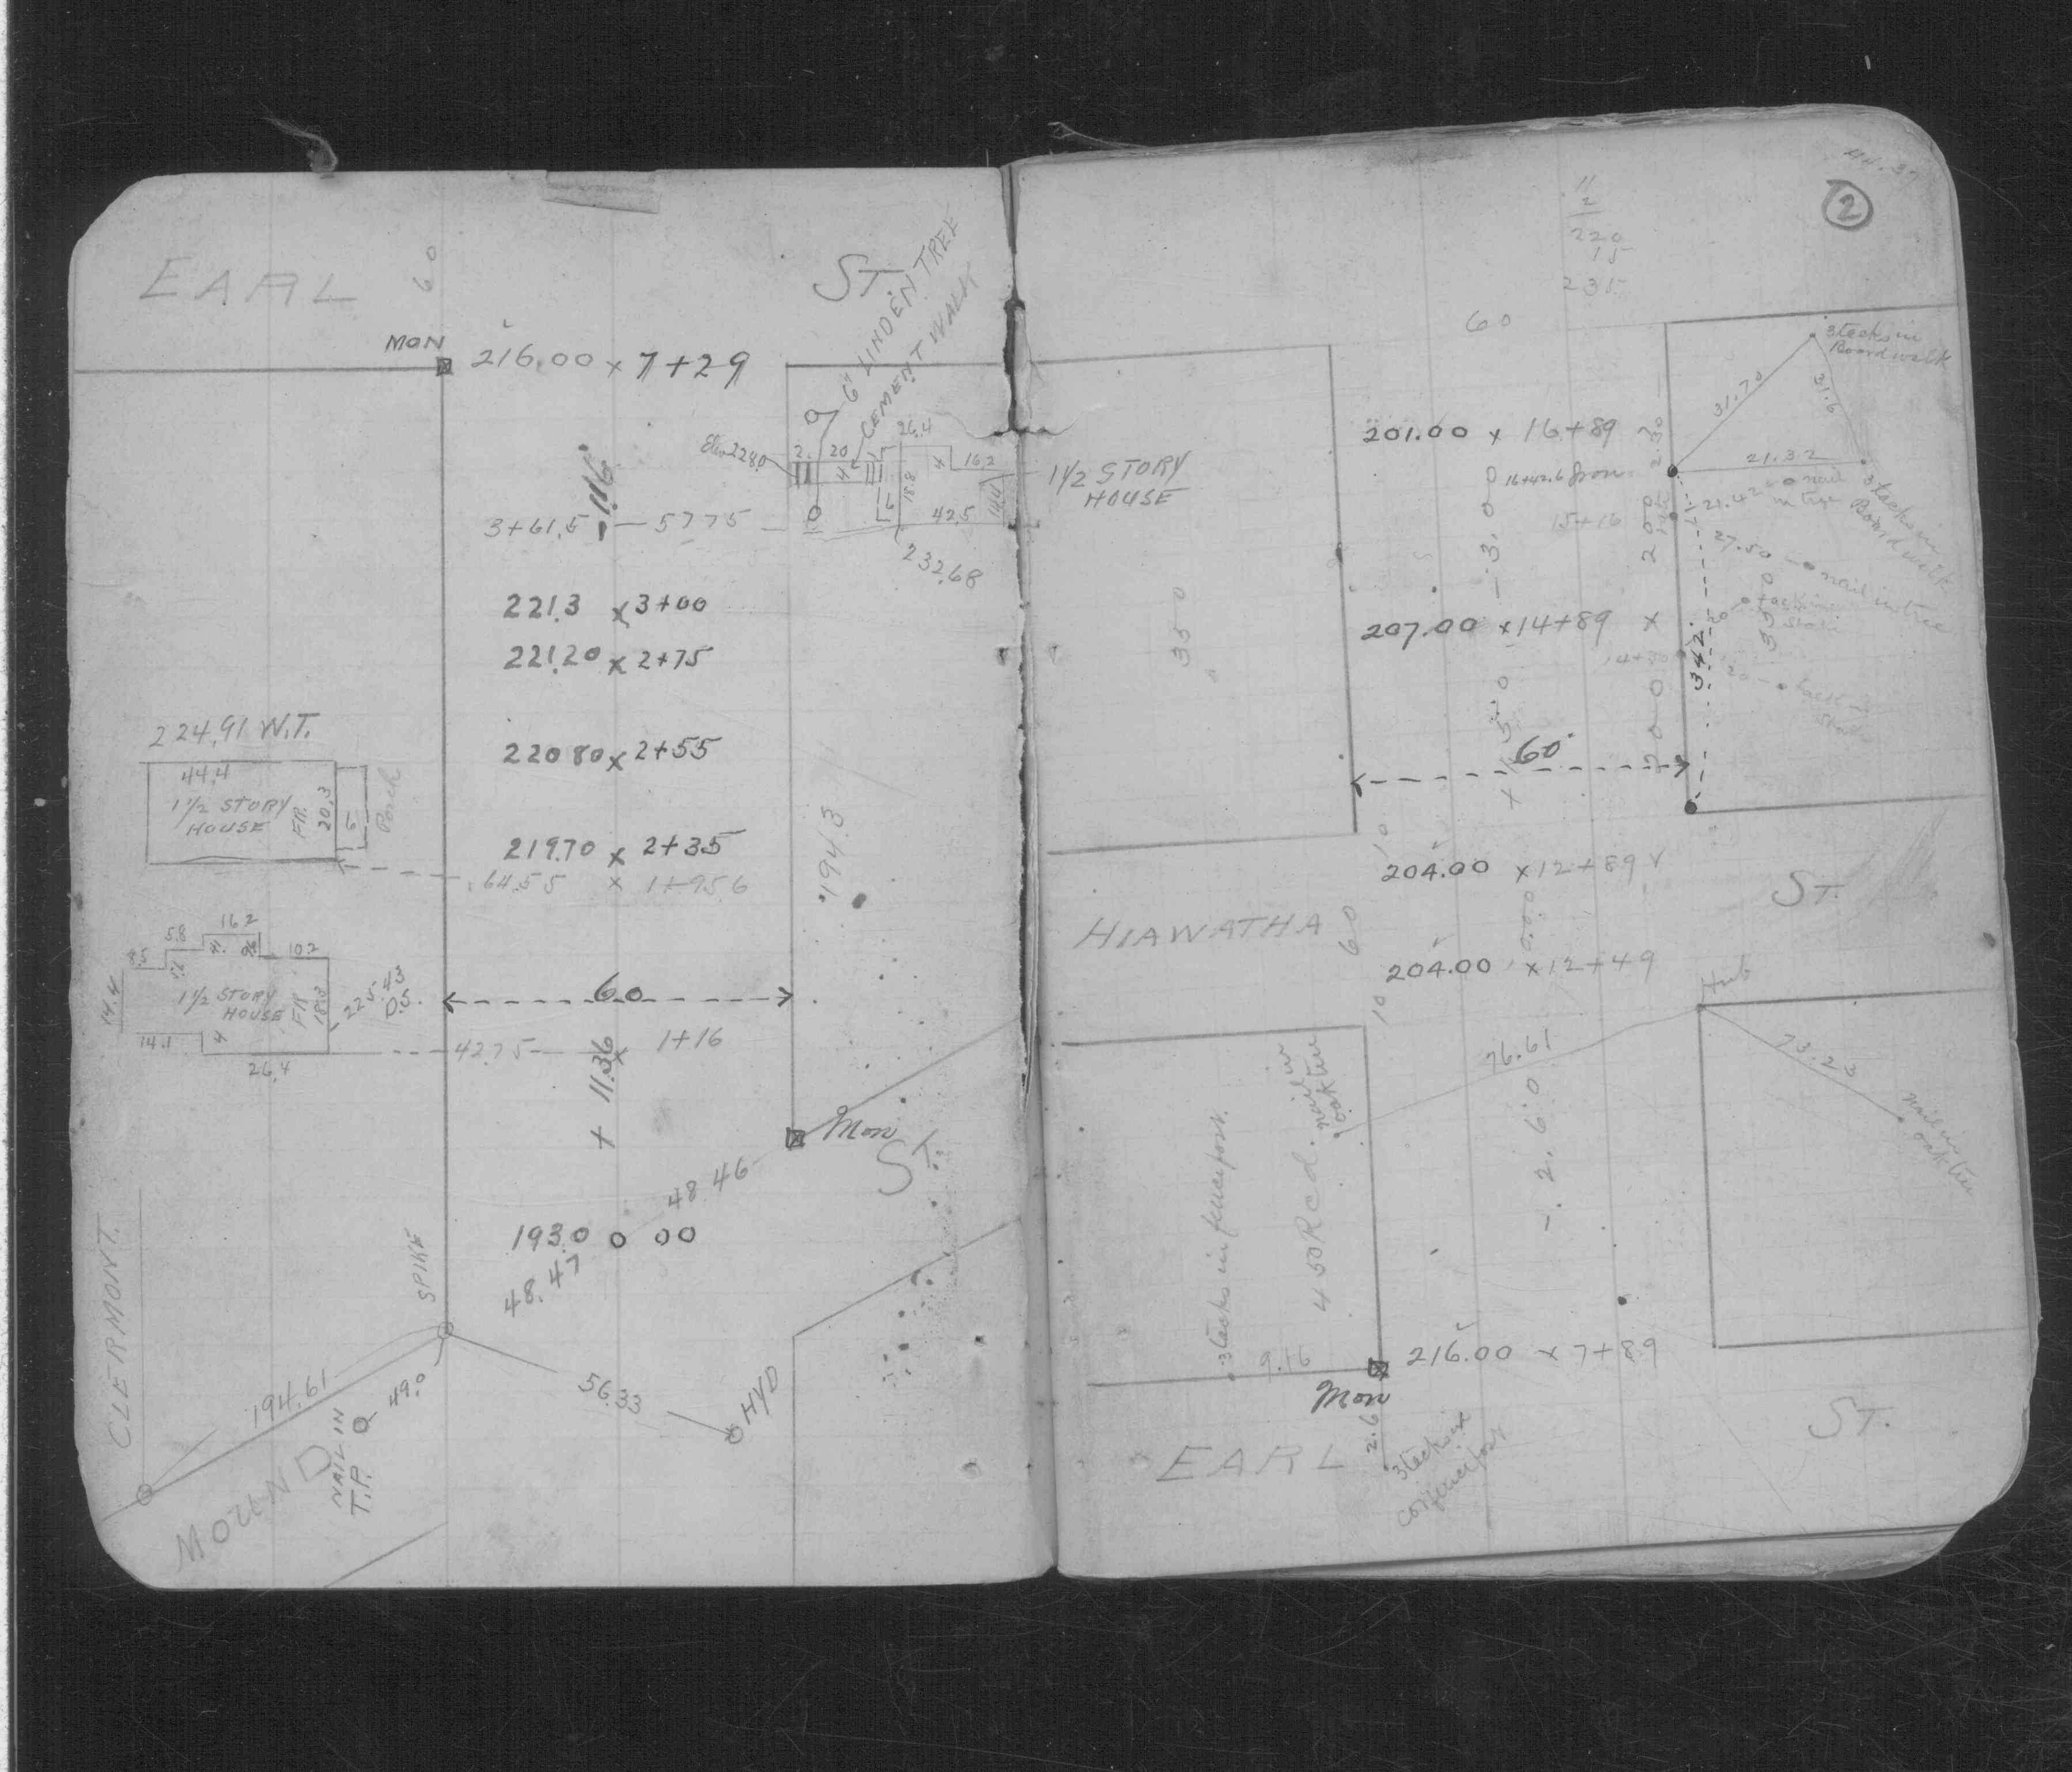 EARL
60
ST.
MON
216.00 x 7+29
6" LINDEN TREE
CEMENT WALK
Elev 228.0
2.
20
26.4
4
16.2
18.8
14.4
42.5
1 1/2 STORY
HOUSE
-1.16
3+61.5 — 57.75
232.68
221.3 x 3+00
221.20 x 2+75
224.91 W.T.
44.4
1 1/2 STORY
HOUSE
FR.
20.3
Porch
220 80 x 2+55
219.70 x 2+35
64.55 x 1+95.6
194.3
16.2
5.8
10.2
14.4
1 1/2 STORY
HOUSE
FR
18.3
225.43
D.S.
14.1
4
26.4
60
42.75
x 1+16
+ 11.36
Mon
ST.
48.46
193.0 0 00
48.47
SPIKE
CLERMONT.
194.61
49.0
56.33
HYD
NAIL IN
T.P.
MOUND
2
11
2
220
15
235
60
3 tacks in
Boardwalk
31.70
31.6
201.00 x 16+89
2.30
21.32
16+42.6 Iron
21.42 nail
in tree
3 tacks in
Boardwalk
15+16
200
-3.00
27.50 nail in tree
350
350
207.00 x 14+89 x
342.
14+30
+1.50
60
10
204.00 x 12+89
ST.
HIAWATHA
60
0.00
204.00 x 12+49
10
Hub
76.61
73.26
nail in
oak tree
nail in
oak tree
3 tacks in fence post.
450 Rcd.
-2.60
9.16
216.00 x 7+89
Mon
2.6
3 tacks in
cor fence post
EARL
ST.